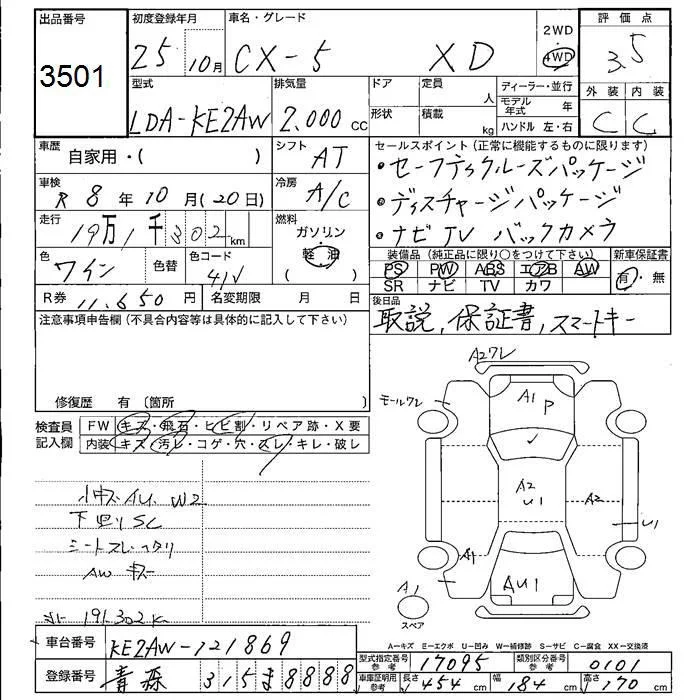 出品番号 初度登録年月 車名・グレード 2WD 4WD 評価点
3501 25 10月 CX-5 XD 3.5
型式 排気量 ドア 定員 人 ディーラー・並行 外装 内装
LDA-KE2AW 2.000 CC 形状 積載 kg モデル年式 年 C C
ハンドル 左・右
車歴 自家用・( ) シフト AT セールスポイント(正常に機能するものに限ります)
・セーフティクルーズパッケージ
車検 R 8年 10月(20日) 冷房 A/C ・ディスチャージパッケージ
走行 19万1千302km 燃料 ガソリン 軽油 ( ) ・ナビTV バックカメラ
色 ワイン 色替 色コード 41V 装備品(純正品に限り○をつけて下さい) 新車保証書
PS PW ABS エアB AW 有・無
SR ナビ TV カワ
R券 11,650円 名変期限 月 日 後日品
取説,保証書,スマートキー
注意事項申告欄(不具合内容等は具体的に記入して下さい)
修復歴 有〔箇所 〕
検査員記入欄 FW キズ・飛石・ヒビ割・リペア跡・X要
内装 キズ・汚レ・コゲ・穴・スレ・キレ・破レ
小キズAU. W2
下回りSC
シートスレ・ヘタリ
AW キズ
191.302K
A2ワレ
モールワレ
A1 P
A2 U1
A2
U1
A1
AU1
A1
スペア
A−キズ E−エクボ U−凹み W−補修跡 S−サビ C−腐食 XX−交換済
車台番号 KE2AW-121869
型式指定番号 参考 17095 類別区分番号 参考 0101
登録番号 青森 315ま8888
車庫証明用 参考 長さ 454cm 幅 184cm 高さ 170cm